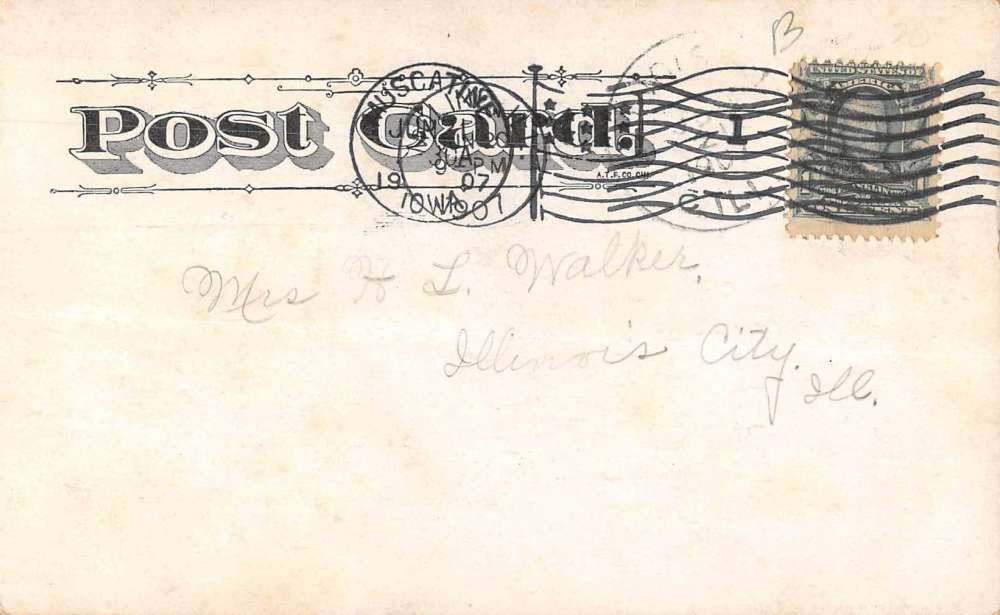 Post Card.
MUSCATINE
JUN
9 PM
1907
IOWA
1907
I
UNITED STATES OF
AMERICA
A.T.F. CO. CHI.
ILL
Mrs H L. Walker,
Illinois City,
Ill.